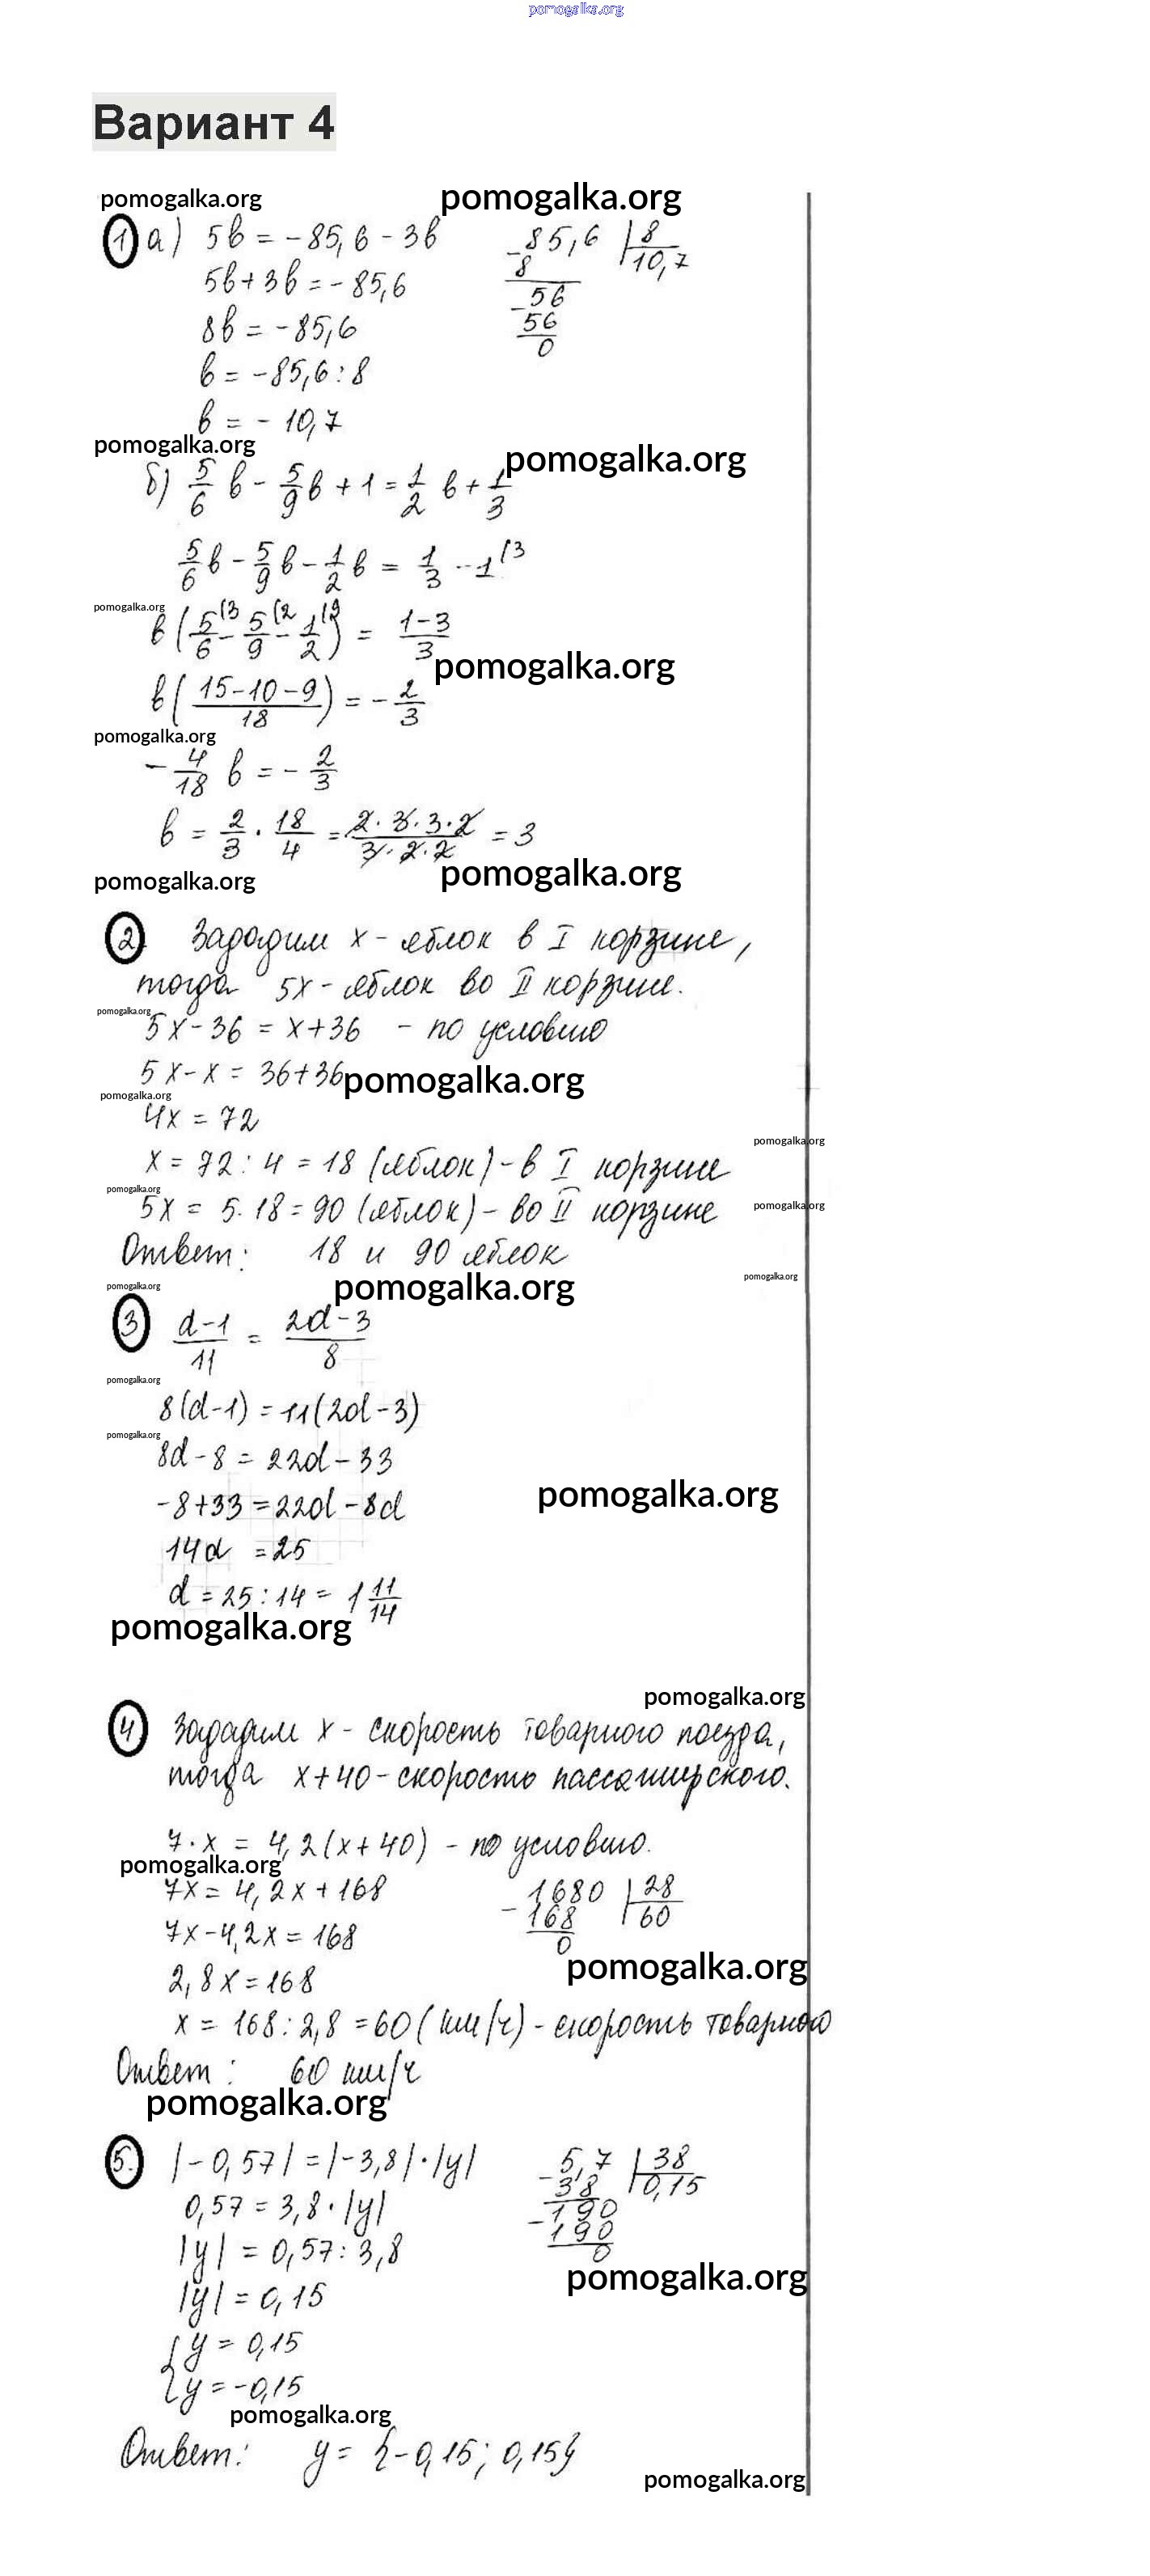 pomogalka.org
Вариант 4
pomogalka.org pomogalka.org
1 а) 5b = -85,6 - 3b
5b + 3b = -85,6
8b = -85,6
b = -85,6 : 8
b = -10,7
85,6 | 8
-8 10,7
-56
56
0
pomogalka.org
pomogalka.org
б) 5/6 b - 5/9 b + 1 = 1/2 b + 1/3
5/6 b - 5/9 b - 1/2 b = 1/3 - 1 (3
pomogalka.org
b (5/6 (3 - 5/9 (2 - 1/2 (9) = (1-3)/3
pomogalka.org
b ((15-10-9)/18) = -2/3
pomogalka.org
-4/18 b = -2/3
b = 2/3 · 18/4 = (2·3·3·2)/(3·2·2) = 3
pomogalka.org pomogalka.org
2 Зададим x - яблок в I корзине,
тогда 5x - яблок во II корзине.
pomogalka.org
5x - 36 = x + 36 - по условию
5x - x = 36 + 36
pomogalka.org
pomogalka.org
4x = 72
pomogalka.org
x = 72 : 4 = 18 (яблок) - в I корзине
pomogalka.org
5x = 5 · 18 = 90 (яблок) - во II корзине
pomogalka.org
Ответ: 18 и 90 яблок
pomogalka.org pomogalka.org pomogalka.org
3 (d-1)/11 = (2d-3)/8
pomogalka.org
8(d-1) = 11(2d-3)
pomogalka.org
8d - 8 = 22d - 33
-8 + 33 = 22d - 8d
pomogalka.org
14d = 25
d = 25 : 14 = 1 11/14
pomogalka.org
pomogalka.org
4 Зададим x - скорость товарного поезда,
тогда x + 40 - скорость пассажирского.
7 · x = 4,2(x + 40) - по условию.
pomogalka.org
7x = 4,2x + 168
7x - 4,2x = 168
2,8x = 168
1680 | 28
-168 60
0
pomogalka.org
x = 168 : 2,8 = 60 (км/ч) - скорость товарного
Ответ: 60 км/ч
pomogalka.org
5. |-0,57| = |-3,8| · |y|
0,57 = 3,8 · |y|
|y| = 0,57 : 3,8
|y| = 0,15
5,7 | 38
-38 0,15
-190
190
0
pomogalka.org
{ y = 0,15
y = -0,15
pomogalka.org
Ответ: y = {-0,15; 0,15}
pomogalka.org